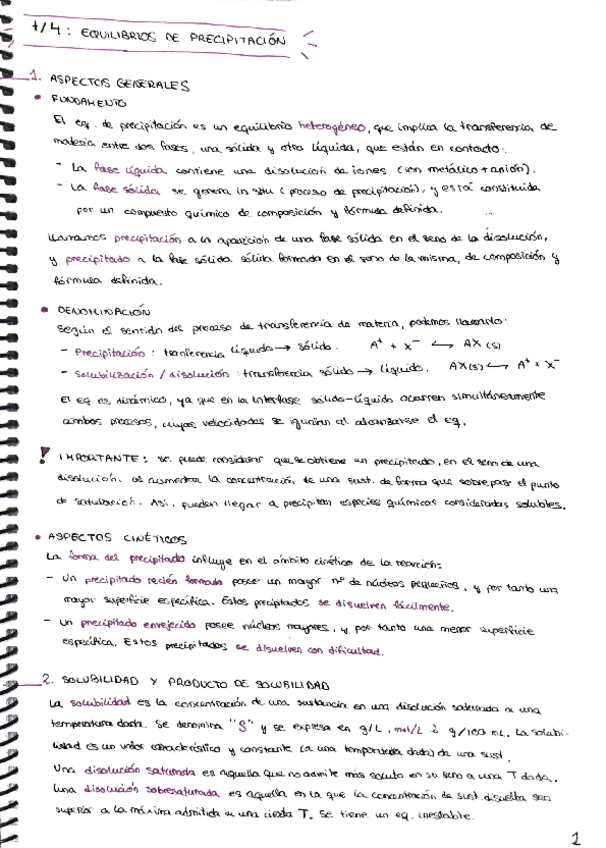 t/4: EQUILIBRIOS DE PRECIPITACIÓN
1. ASPECTOS GENERALES
• FUNDAMENTO
El eq. de precipitación es un equilibrio heterogéneo, que implica la transferencia de
materia entre dos fases, una sólida y otra líquida, que están en contacto.
- La fase líquida contiene una disolución de iones (ion metálico + anión).
- La fase sólida se genera in situ (proceso de precipitación), y está constituida
por un compuesto químico de composición y fórmula definida.
Llamamos precipitación a la aparición de una fase sólida en el seno de la disolución,
y precipitado a la fase sólida sólida formada en el seno de la misma, de composición y
fórmula definida.
• DENOMINACIÓN
Según el sentido del proceso de transferencia de materia, podemos llamarlo:
- Precipitación: tranferencia líquido → sólido. A⁺ + X⁻ ⟷ AX (s)
- Solubilización / disolución: transferencia sólido → líquido. AX(s) ⟷ A⁺ + X⁻
El eq. es dinámico, ya que en la interfase sólido-líquido ocurren simultáneamente
ambos procesos, cuyas velocidades se igualan al alcanzarse el eq.
! IMPORTANTE: se puede considerar que se obtiene un precipitado, en el seno de una
disolución, al aumentar la concentración de una sust. de forma que sobrepase el punto
de saturación. Así, pueden llegar a precipitar especies químicas consideradas solubles.
• ASPECTOS CINÉTICOS
La forma del precipitado influye en el ámbito cinético de la reacción:
- Un precipitado recién formado posee un mayor nº de núcleos pequeños, y por tanto una
mayor superficie específica. Estos precipitados se disuelven fácilmente.
- Un precipitado envejecido posee núcleos mayores, y por tanto una menor superficie
específica. Estos precipitados se disuelven con dificultad.
2. SOLUBILIDAD Y PRODUCTO DE SOLUBILIDAD
La solubilidad es la concentración de una sustancia en una disolución saturada a una
temperatura dada. Se denomina "S" y se expresa en g/L, mol/L ó g/100 mL. La solubi-
lidad es un valor característico y constante (a una temperatura dada) de una sust.
Una disolución saturada es aquella que no admite más soluto en su seno a una T dada.
Una disolución sobresaturada es aquella en la que la concentración de sust. disuelta es
superior a la máxima admitida a una cierta T. Se tiene un eq. inestable.
1